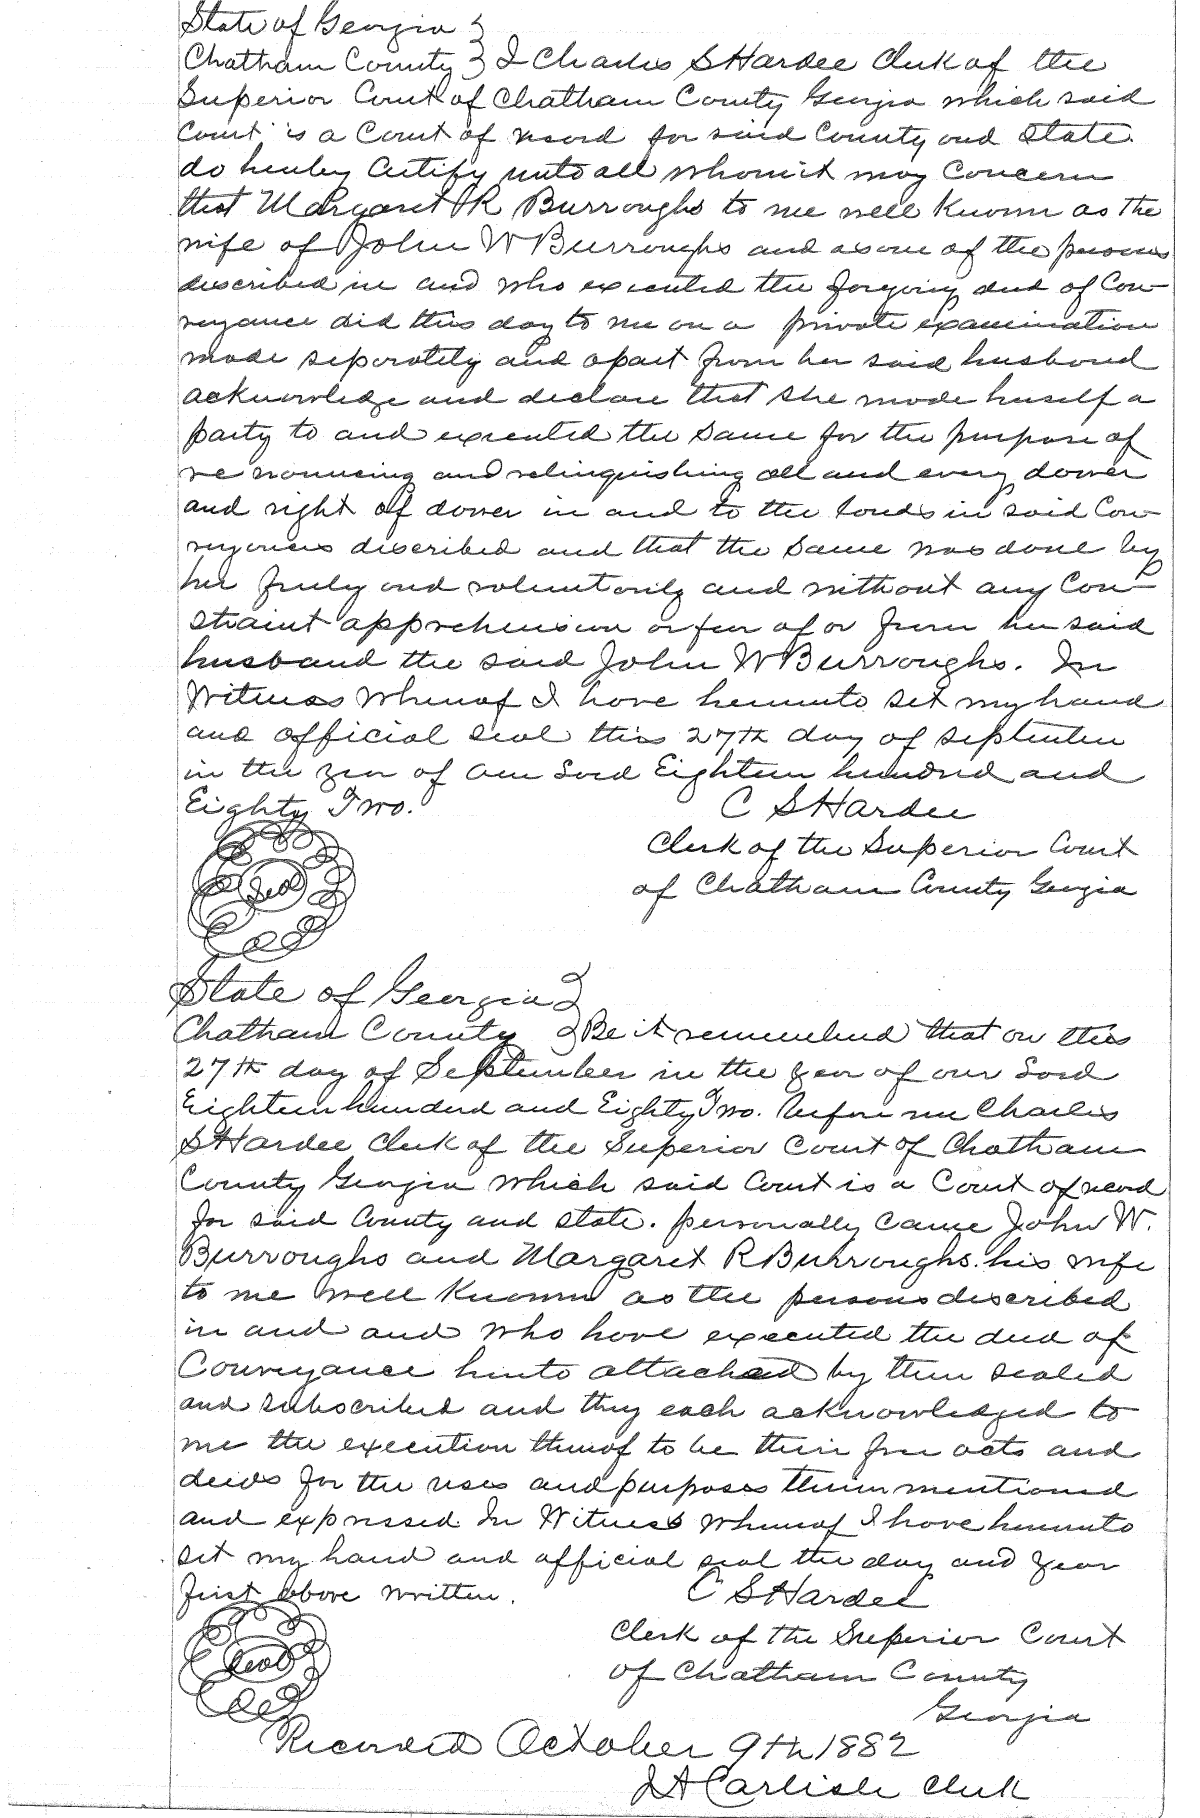 State of Georgia }
Chatham County } I Charles S Hardee Clerk of the
Superior Court of Chatham County Georgia which said
Court is a Court of record for said County and State
do hereby Certify unto all whom it may Concern
that Margaret R Burroughs to me well Known as the
wife of John W Burroughs and as one of the persons
described in and who executed the foregoing deed of Con-
veyance did this day to me on a private examination
made seperately and apart from her said husband
acknowledge and declare that she made herself a
party to and executed the same for the purpose of
renouncing and relinquishing all and every dower
and right of dower in and to the lands in said Con-
veyances discribed and that the same was done by
her freely and voluntarily and without any Con-
straint apprehension or fear of or from her said
husband the said John W Burroughs. In
Witness Whereof I have hereunto set my hand
and official seal this 27th day of September
in the year of our Lord Eighteen hundred and
Eighty Two.
C S Hardee
Clerk of the Superior Court
of Chatham County Georgia
Seal
State of Georgia }
Chatham County } Be it remembered that on this
27th day of September in the year of our Lord
Eighteen hundred and Eighty Two. before me Charles
S Hardee Clerk of the Superior Court of Chatham
County Georgia which said Court is a Court of record
for said County and State. personally came John W.
Burroughs and Margaret R Burroughs his wife
to me well Known as the persons described
in and and who have executed the deed of
Conveyance hereto attached by them sealed
and subscribed and they each acknowledged to
me the execution thereof to be their free acts and
deeds for the uses and purposes therein mentioned
and expressed. In Witness whereof I have hereunto
set my hand and official seal the day and year
first above written.
C S Hardee
Clerk of the Superior Court
of Chatham County
Georgia
Seal
Recorded October 9th 1882
J A Carlisle Clerk